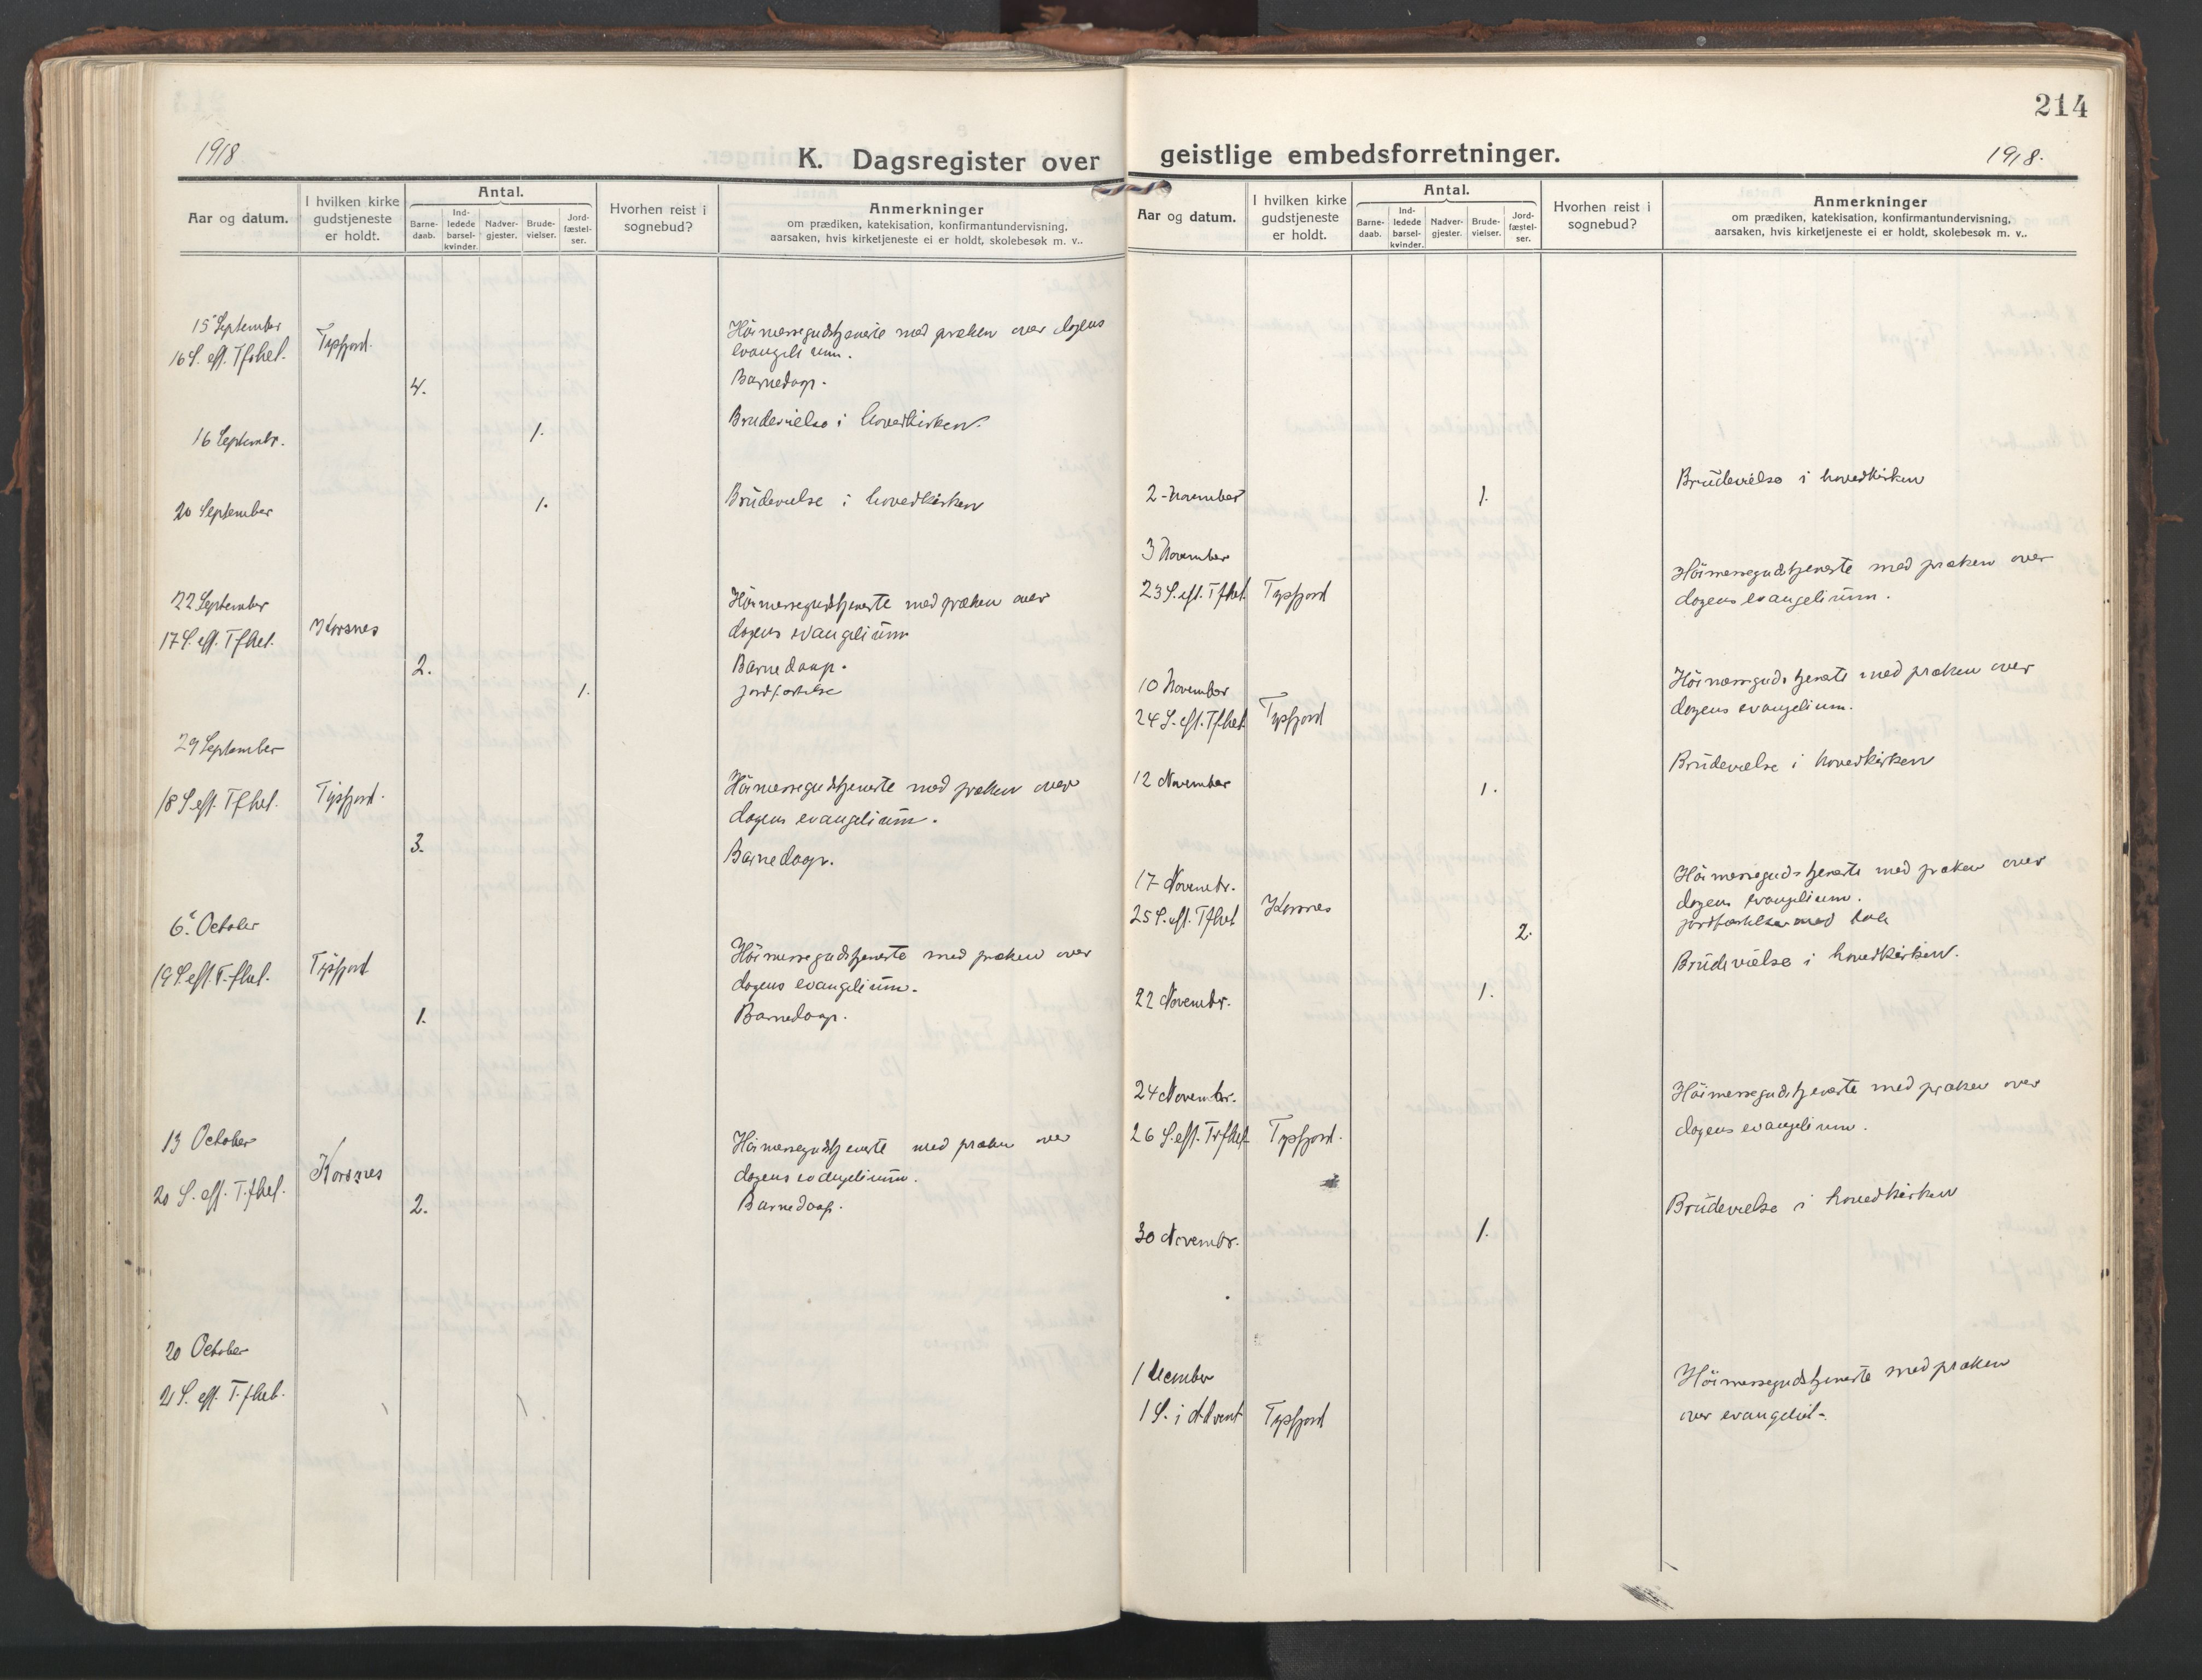 1918
K. Dagsregister over
Aar og datum.
I hvilken kirke
gudstjeneste
er holdt.
Antal.
Barne-
daab.
Ind-
ledede
barsel-
kvinder.
Nadver-
gjester.
Brude-
vielser.
Jord-
fæstel-
ser.
Hvorhen reist i
sognebud?
Anmerkninger
om prædiken, katekisation, konfirmantundervisning,
aarsaken, hvis kirketjeneste ei er holdt, skolebesøk m. v..
15 September
16 S. eft. Tfhet. Tysfjord.
Höimessegudstjeneste med præken over dagens
evangelium.
4. Barnedaap.
16 Septembr. 1. Brudevielse i hovedkirken.
20 September 1. Brüdevielse i hovedkirken
22 September
17 S. eft. Tfhet. Korsnes
Höimessegudstjeneste med præken over
dagens evangeliüm
2. Barnedaap.
1. jordfæstelse
29 September
18 S. eft. Tfhet. Tysfjord.
Höimessegudstjeneste med præken over
dagens evangeliüm.
3. Barnedaap.
6 October
19 S. eft. T.fhet. Tysfjord
Höimessegudstjeneste med præken over
dagens evangeliüm.
1. Barnedaap.
13 October
20 S. eft. T.fhet. Korsnes
Höimessegudstjeneste med præken over
dagens evangeliüm.
2. Barnedaap.
20 October
21 S. eft. T.fhet.
214
geistlige embedsforretninger.
1918.
Aar og datum.
I hvilken kirke
gudstjeneste
er holdt.
Antal.
Barne-
daab.
Ind-
ledede
barsel-
kvinder.
Nadver-
gjester.
Brude-
vielser.
Jord-
fæstel-
ser.
Hvorhen reist i
sognebud?
Anmerkninger
om prædiken, katekisation, konfirmantundervisning,
aarsaken, hvis kirketjeneste ei er holdt, skolebesøk m. v..
2 November 1. Brüdevielse i hovedkirken
3 November
23 S. eft. Tfhet. Tysfjord
Höimessegudstjeneste med præken over
dagens evangeliüm.
10 November
24 S. eft. Tfhet Tysfjord
Höimessegudstjeneste med præken over
dagens evangelium.
12 November 1. Brüdevielse i hovedkirken
17 Novembr.
25 S. eft. Tfhet Korsnes
Höimessegudstjeneste med præken over
dagens evangelium.
2. jordfæstelser med tale
22 Novembr. 1. Brüdevielse i hovedkirken.
24 Novembr.
26 S. eft. Trfhet Tysfjord.
Höimessegudstjeneste med præken over
dagens evangelium.
30 Novembr. 1. Brüdevielse i hovedkirken
1 december
1 S. i Advent Tysfjord
Höimessegudstjeneste med præken
over evangeliet.